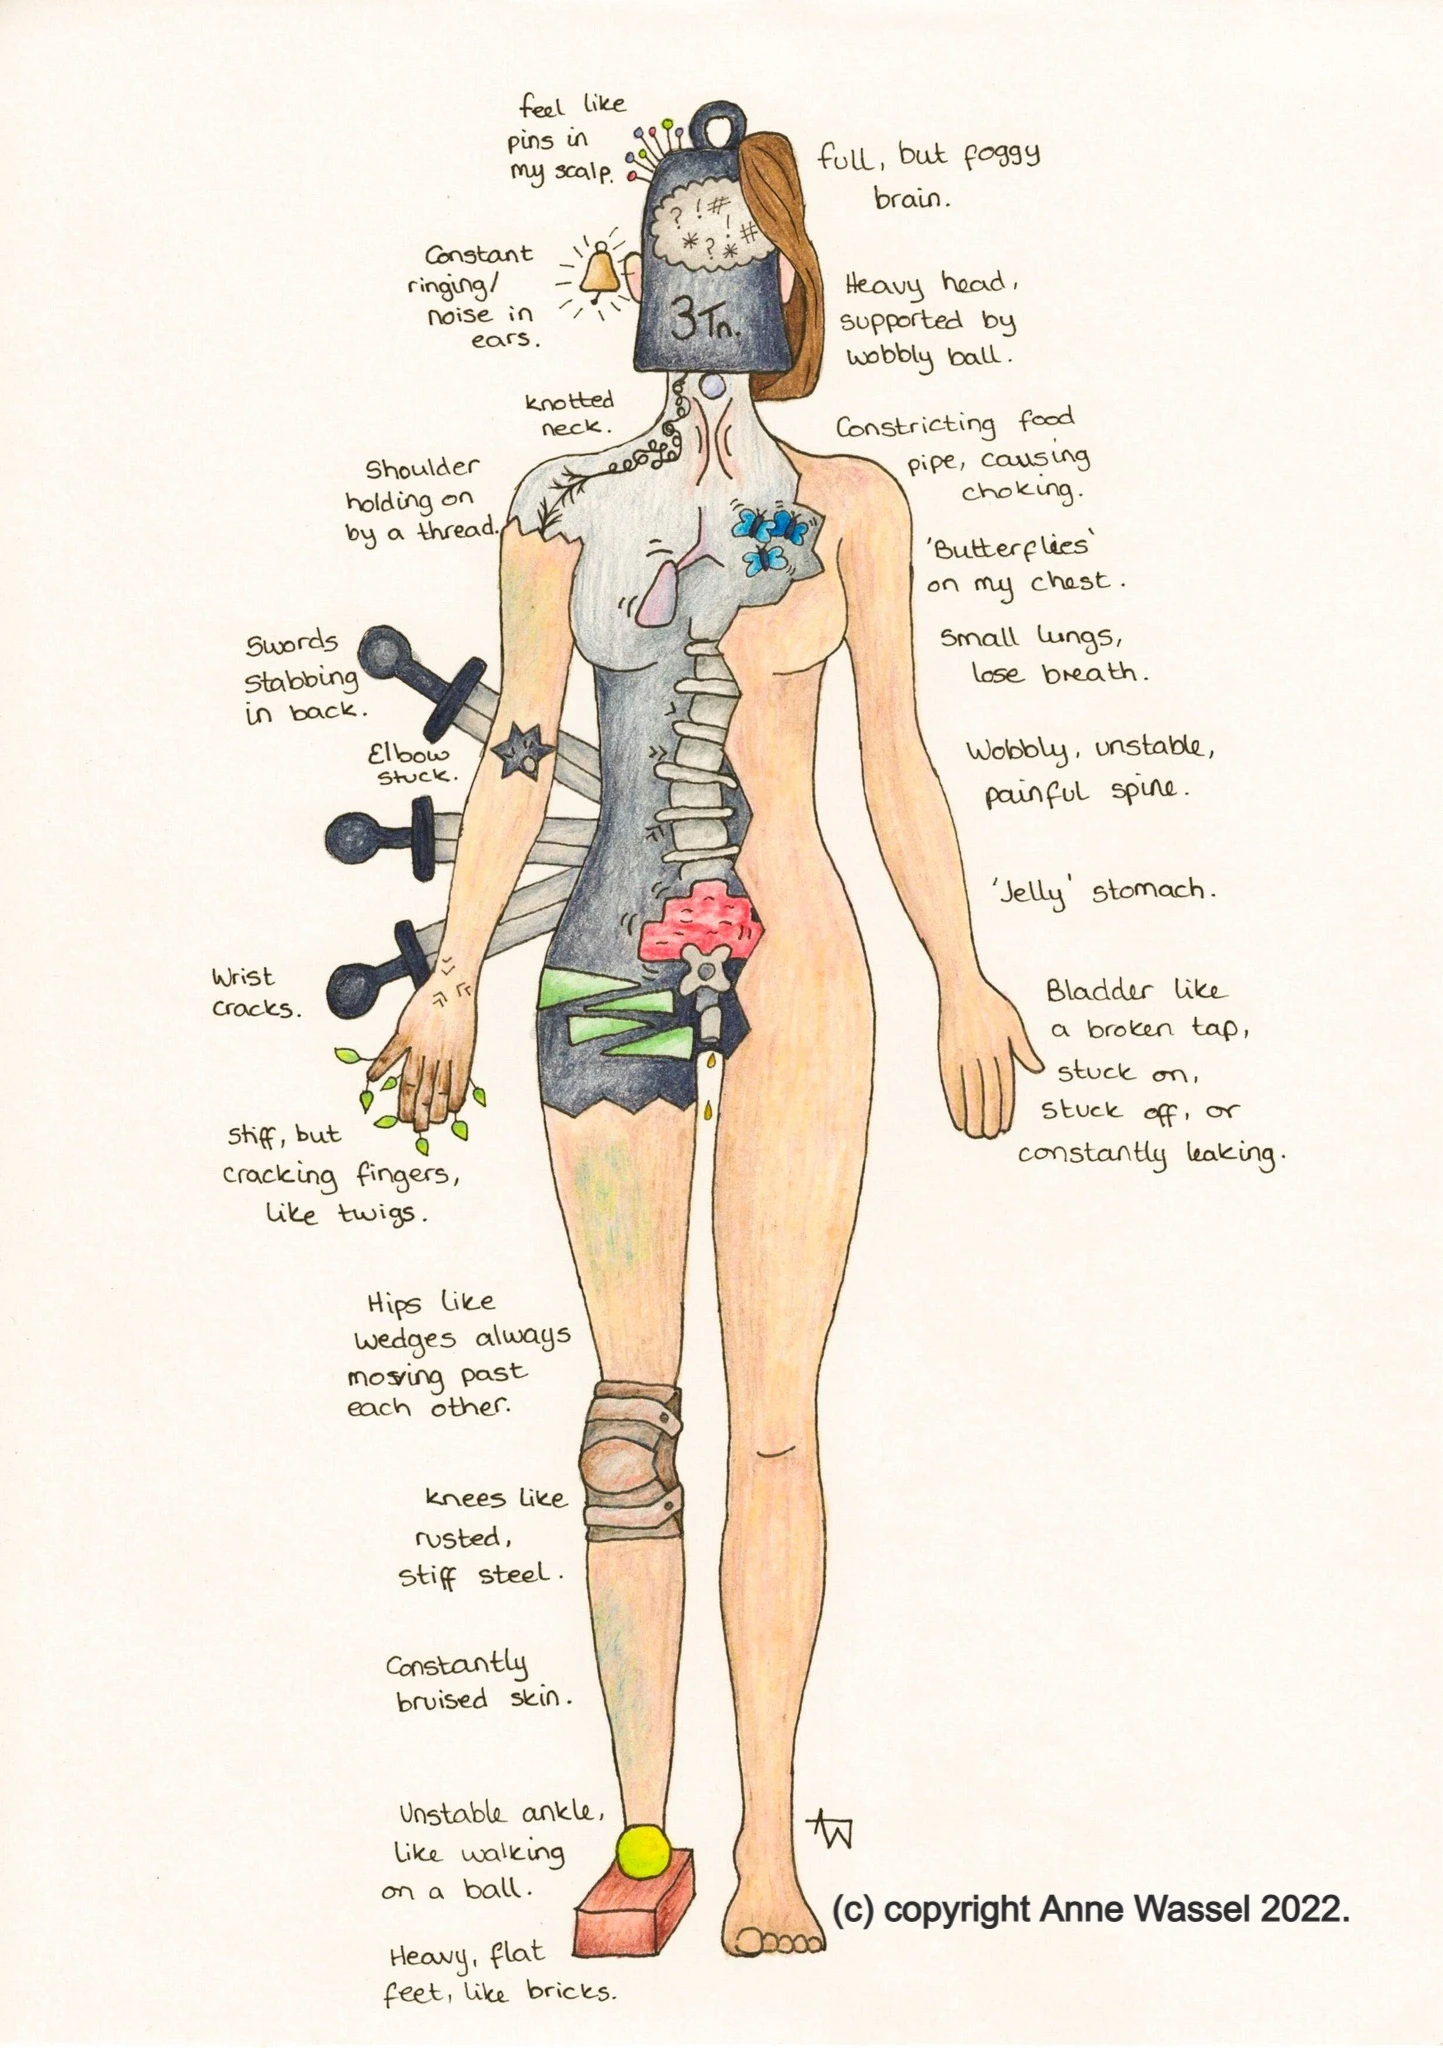 feel like
pins in
my scalp.
full, but foggy
brain.
? ! #
! #
* ? *
Constant
ringing/
noise in
ears.
3Tn.
Heavy head,
supported by
wobbly ball.
knotted
neck.
Constricting food
pipe, causing
choking.
Shoulder
holding on
by a thread.
'Butterflies'
on my chest.
Swords
stabbing
in back.
Small lungs,
lose breath.
Elbow
stuck.
Wobbly, unstable,
painful spine.
'Jelly' stomach.
Wrist
cracks.
Bladder like
a broken tap,
stuck on,
stuck off, or
constantly leaking.
Stiff, but
cracking fingers,
like twigs.
Hips like
wedges always
moving past
each other.
knees like
rusted,
stiff steel.
Constantly
bruised skin.
Unstable ankle,
like walking
on a ball.
AW
(c) copyright Anne Wassel 2022.
Heavy, flat
feet, like bricks.